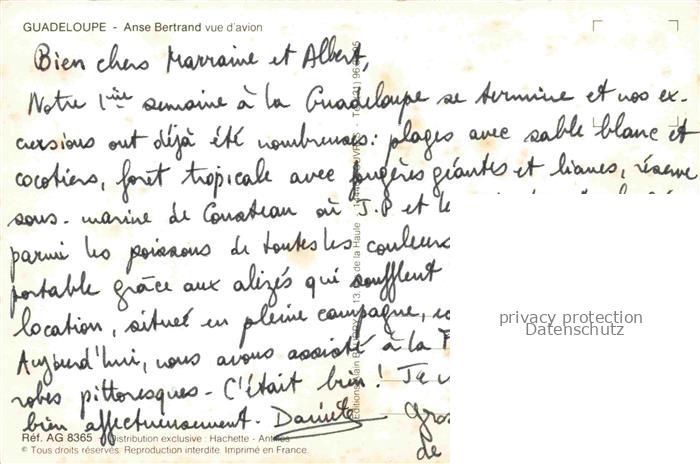 GUADELOUPE - Anse Bertrand vue d'avion
Bien chers Marraine et Albert,
Notre 1ère semaine à la Guadeloupe se termine et nos ex-
cursions ont déjà été nombreuses: plages avec sable blanc et
cocotiers, forêt tropicale avec fougères géantes et lianes, réserve
sous-marine de Cousteau où J.P et le
parmi les poissons de toutes les couleurs
portable grâce aux alizés qui soufflent
location, située en pleine campagne,
Aujourd'hui, nous avons assisté à la F
robes pittoresques - C'était bien! Je
bien affectueusement. Danièle Gros
de
Réf. AG 8365 - Distribution exclusive : Hachette - Antilles
© Tous droits réservés. Reproduction interdite. Imprimé en France.
13, de la Haule
privacy protection
Datenschutz